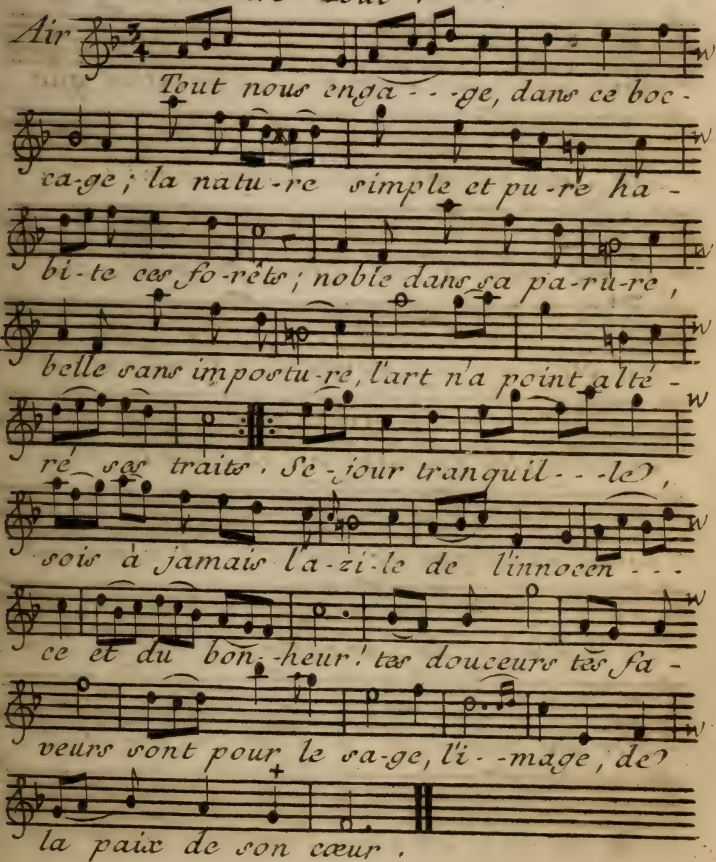 Air
Tout nous enga - - -ge, dans ce boc-
ca-ge; la natu-re simple et pu-re ha-
bi-te ces fo-rêts; noble dans sa pa-ru-re,
belle sans impostu-re, l'art n'a point alté-
ré ses traits. Se-jour tranquil - - -le,
sois à jamais l'a-zi-le de l'innocen - - -
ce et du bon-heur! tes douceurs tes fa-
veurs sont pour le sa-ge, l'i--mage, de
la paix de son cœur.